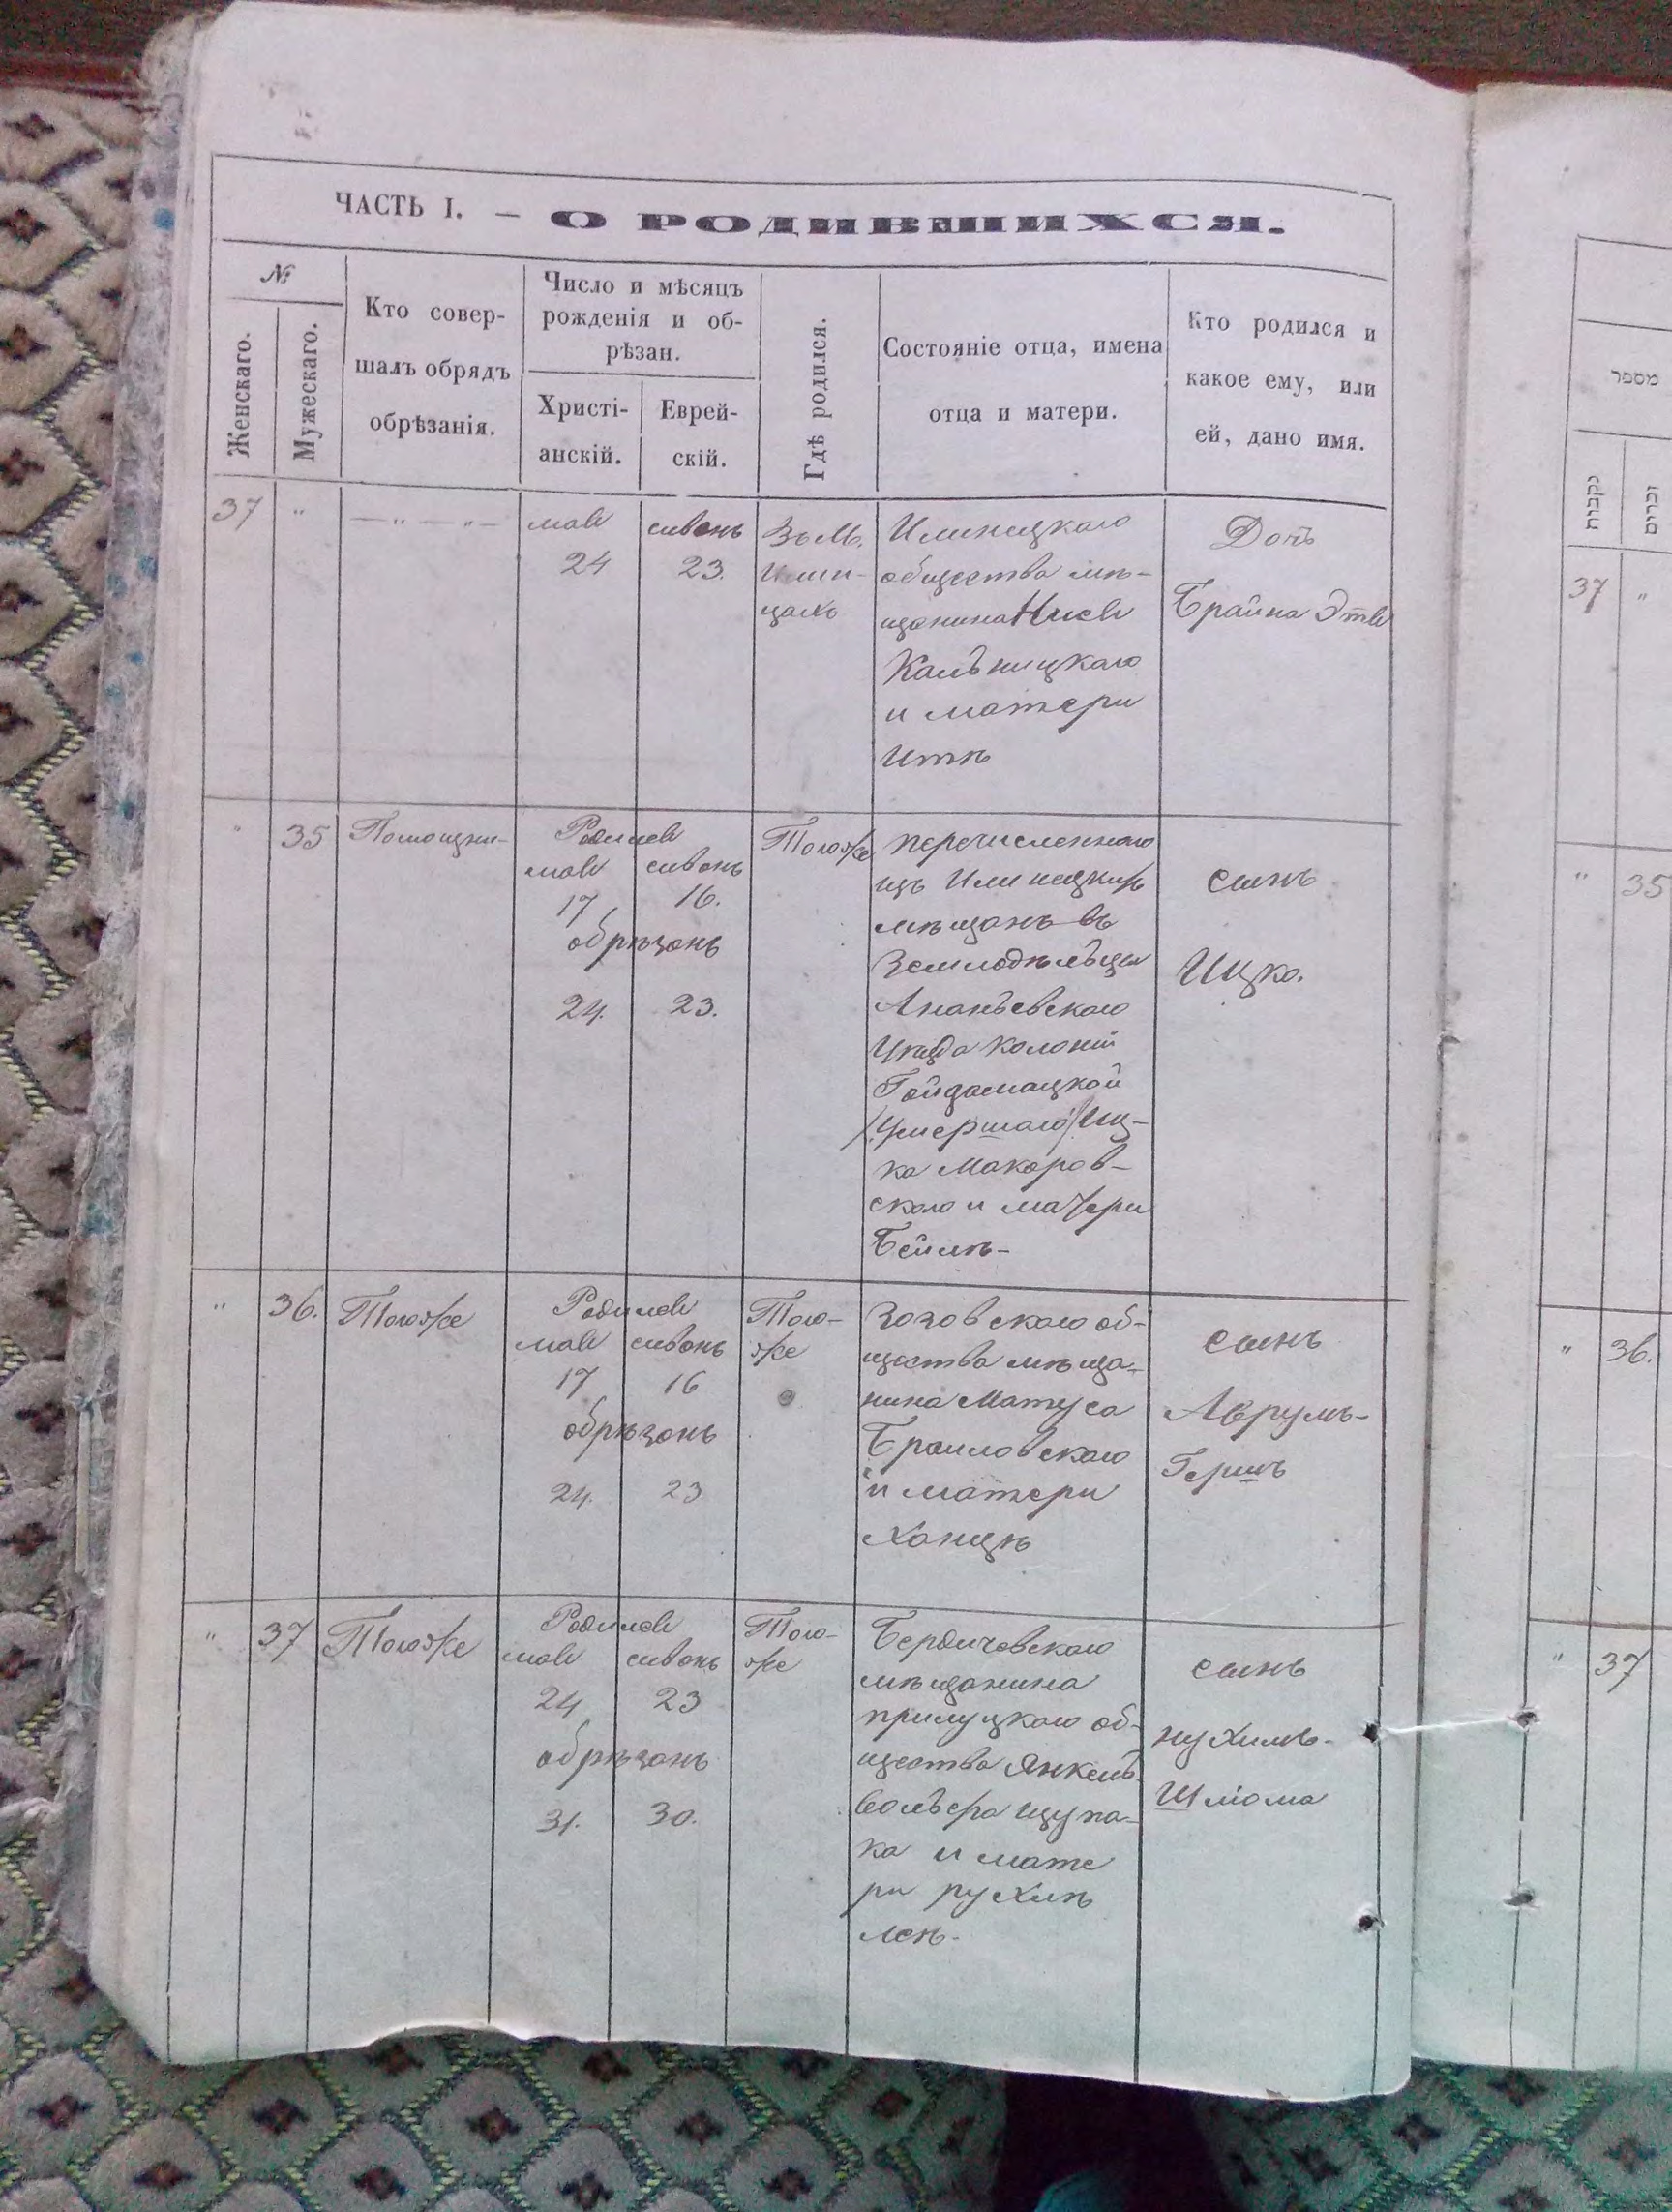 ЧАСТЬ I. — О РОДИВШИХСЯ.
№
Женскаго.
Мужескаго.
Кто совер-
шалъ обрядъ
обрѣзанія.
Число и мѣсяцъ
рожденія и об-
рѣзан.
Христі-
анскій.
Еврей-
скій.
Гдѣ родился.
Состояніе отца, имена
отца и матери.
Кто родился и
какое ему, или
ей, дано имя.
37
"
— " — " —
мая
24
сивонь
23.
Въ М.
Илин-
цахъ
Илинецкаго
общества мѣ-
щанина
Кальницкаго
и матери
Итѣ
Дочь
Брайна Этя
"
35
Помощни-
Родился
мая сивонь
17 16.
обрѣзанъ
24. 23.
Тогоже
перечисленнаго
изъ Илинецкихъ
мѣщанъ въ
Земледѣльцы
Ананьевскаго
Уѣзда Колоніи
Гойдамацкой
/Умершаго/ Иц-
ка Макаров-
скаго и матери
Бейлѣ-
сынъ
Ицко.
"
36.
Тогоже
Родился
мая сивонь
17 16
обрѣзанъ
24. 23
Того-
же
Зозовскаго об-
щества мѣща-
нина Матуса
Браиловскаго
и матери
Ханцѣ
сынъ
Аврумъ-
Гершъ
"
37
Тогоже
Родился
мая сивонь
24 23
обрѣзанъ
31. 30.
Того-
же
Бердичевскаго
мѣщанина
прилуцкаго об-
щества Янкель
Вольфа Щупа-
ка и мате
ри рухлѣ
леѣ-
сынъ
нухимъ-
Шлома
מספר
נקבות
זכרים
37
"
"
35
"
36.
"
37